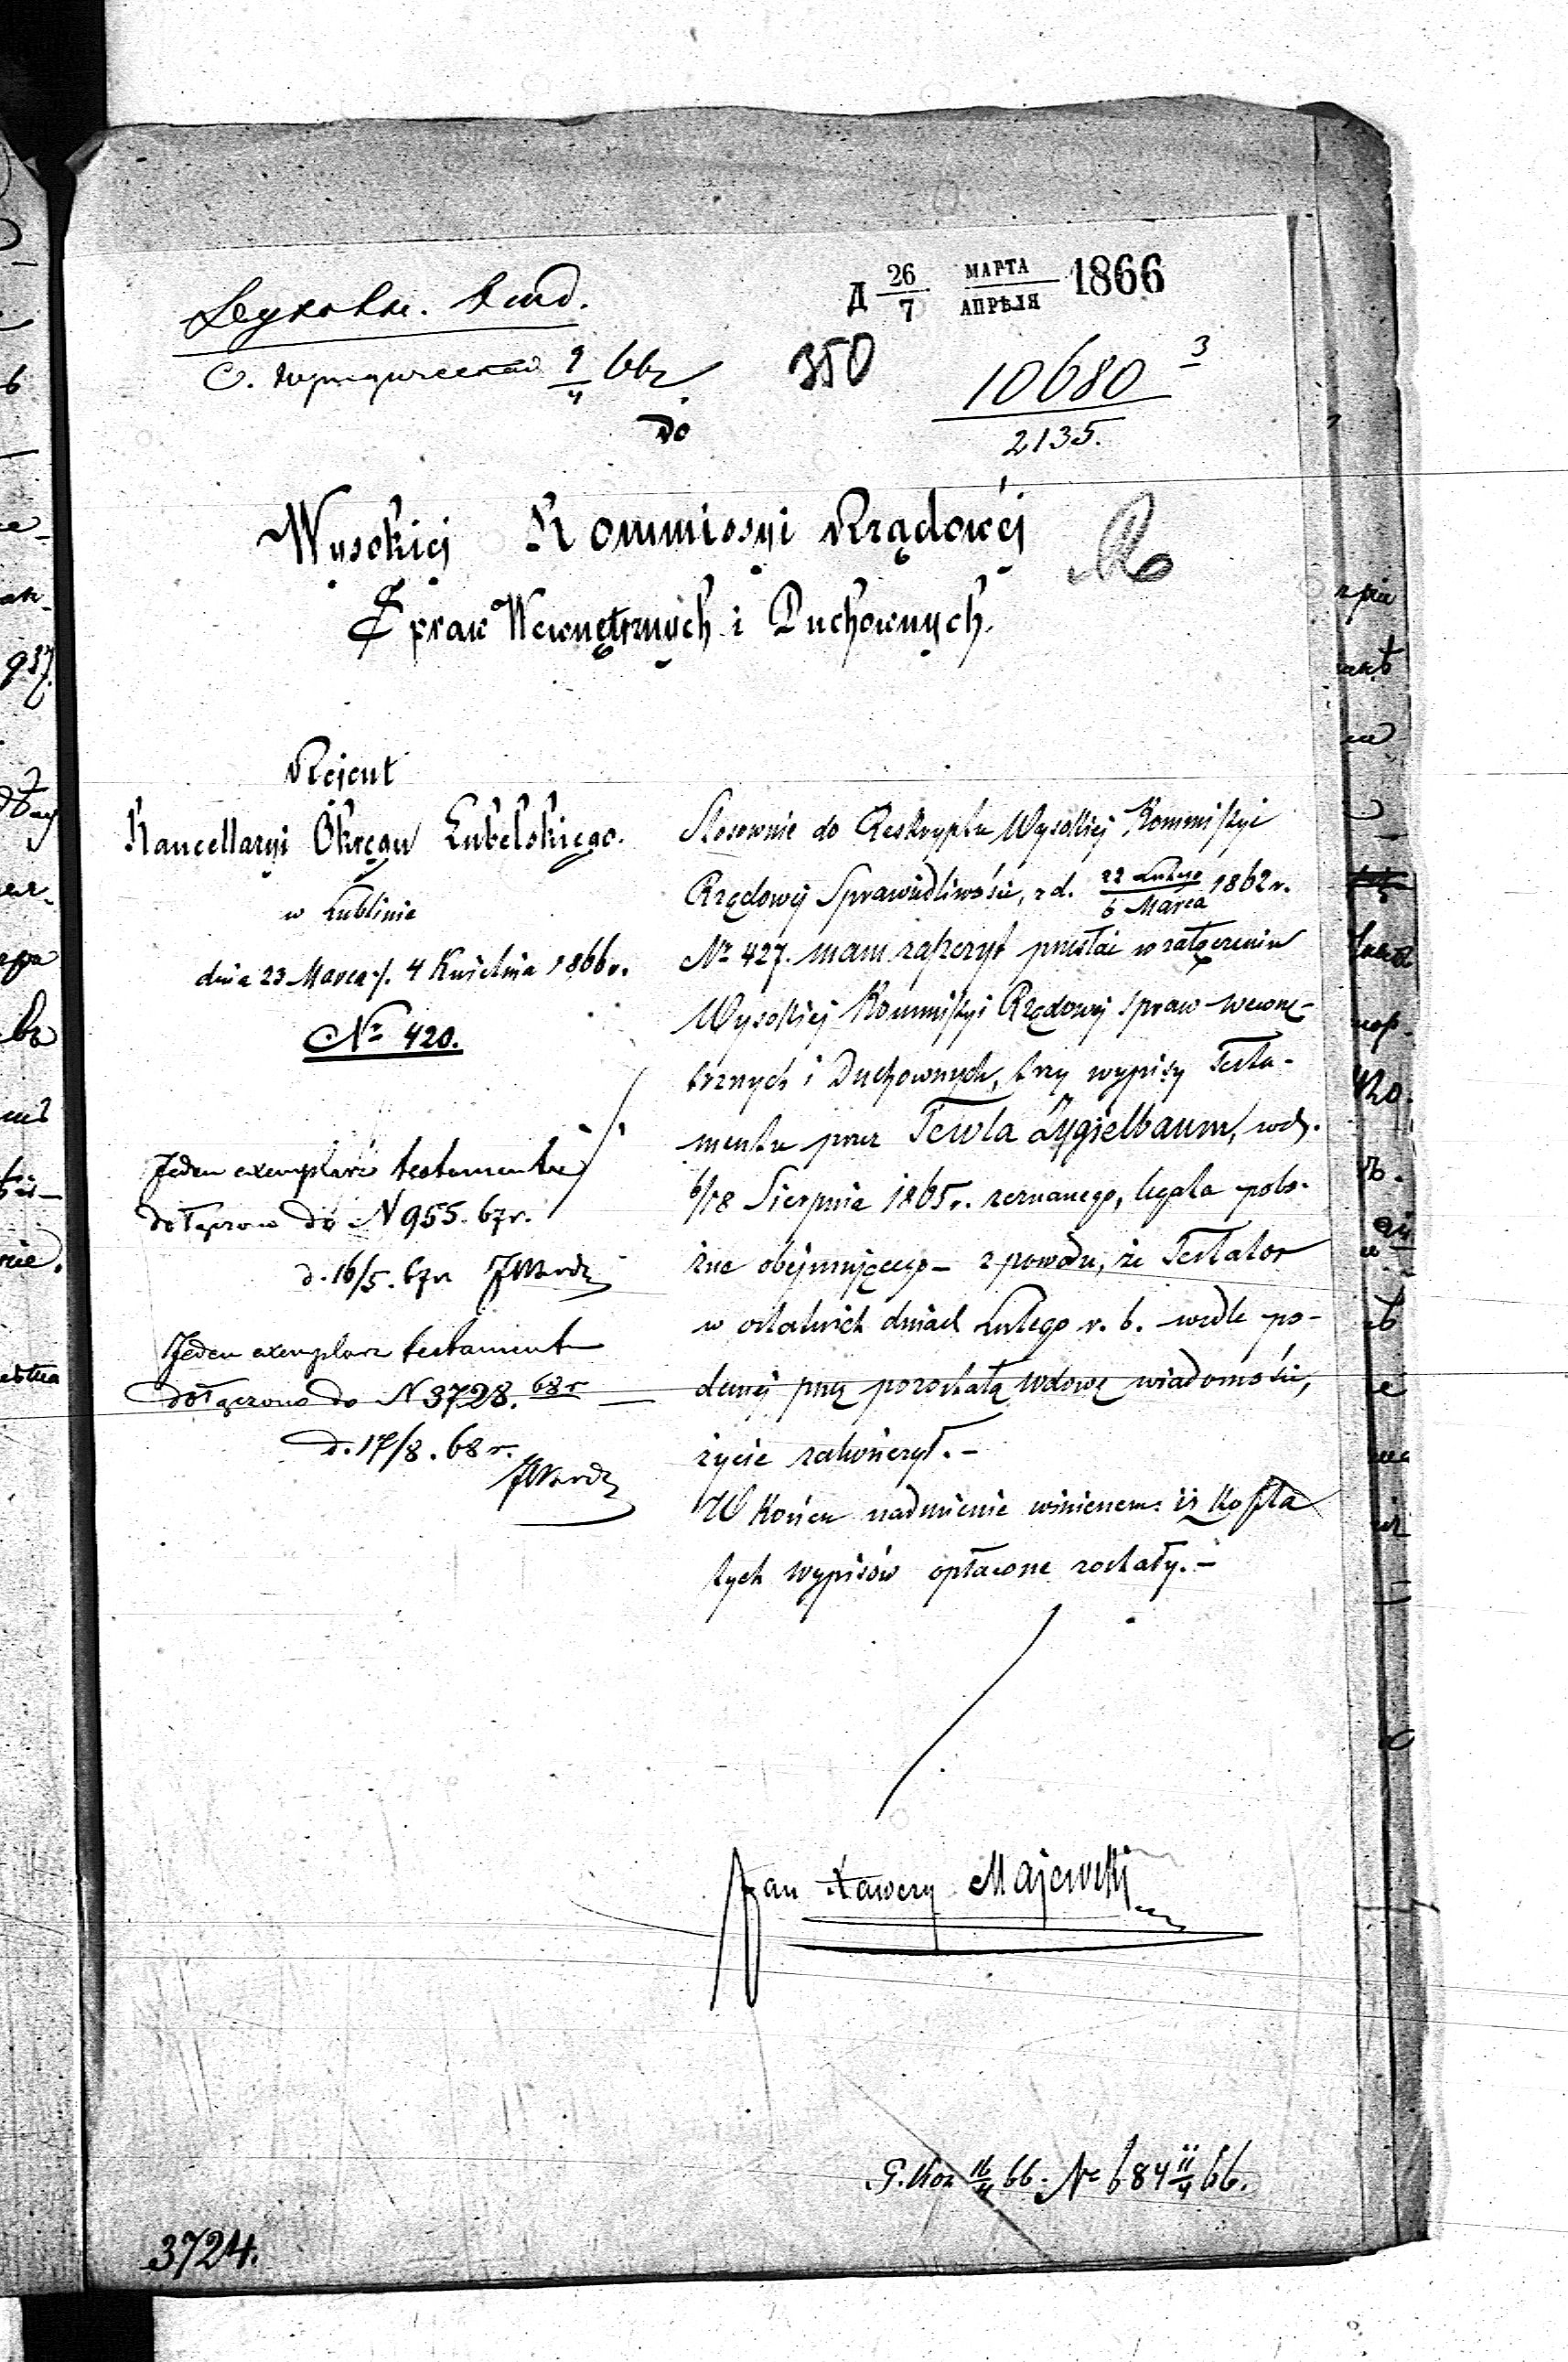 Д 26/7 МАРТА/АПРѢЛЯ 1866
350
10680 3
2135.
Do
Wysokiej Kommissyi Rządowéj
Spraw Wewnętrznych i Duchownych.
Rejent
Kancellaryi Okręgu Lubelskiego.
w Lublinie
dnia 23 Marca/. 4 Kwietnia 1866 r.
№ 420.
Jeden exemplarz testamentu
dołączono do N 955. 67 r.
d. 16/5. 67 r.
Jeden exemplarz testamentu
dołączono do N 3728. 68 r
d. 17/8. 68 r.
Stosownie do Reskryptu Wysokiej Kommissyi
Rządowej Sprawiedliwości, z d. 22 Lutego/6 Marca 1862 r.
№ 427. mam zaszczyt przesłać w załączeniu
Wysokiej Kommissyi Rządowej Spraw Wewnę-
trznych i Duchownych, trzy wypisy Testa-
mentu przez Tewla Zygielbaum, w d.
6/18 Sierpnia 1865 r. zeznanego, legata pobo-
żne obejmującego – z powodu, że Testator
w ostatnich dniach Lutego r. b. wedle po-
danej przez pozostałą wdowę wiadomości,
życie zakończył. –
W końcu nadmienić winienem: iż koszta
tych wypisów opłacone zostały. –
Jan Xawery Majewski
№ 684 11/4 66.
3724.